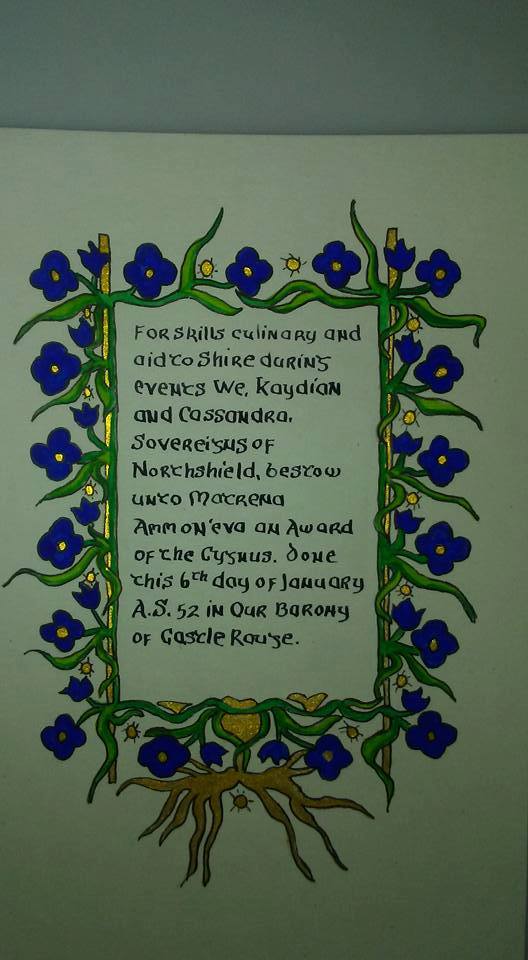 For skills culinary and
aid to Shire during
events We, Kaydian
and Cassandra,
Sovereigns of
Northshield, bestow
unto Matrena
Ammon'eva an Award
of the Cygnus. Done
this 6th day of January
A.S. 52 in Our Barony
of Castle Rouge.